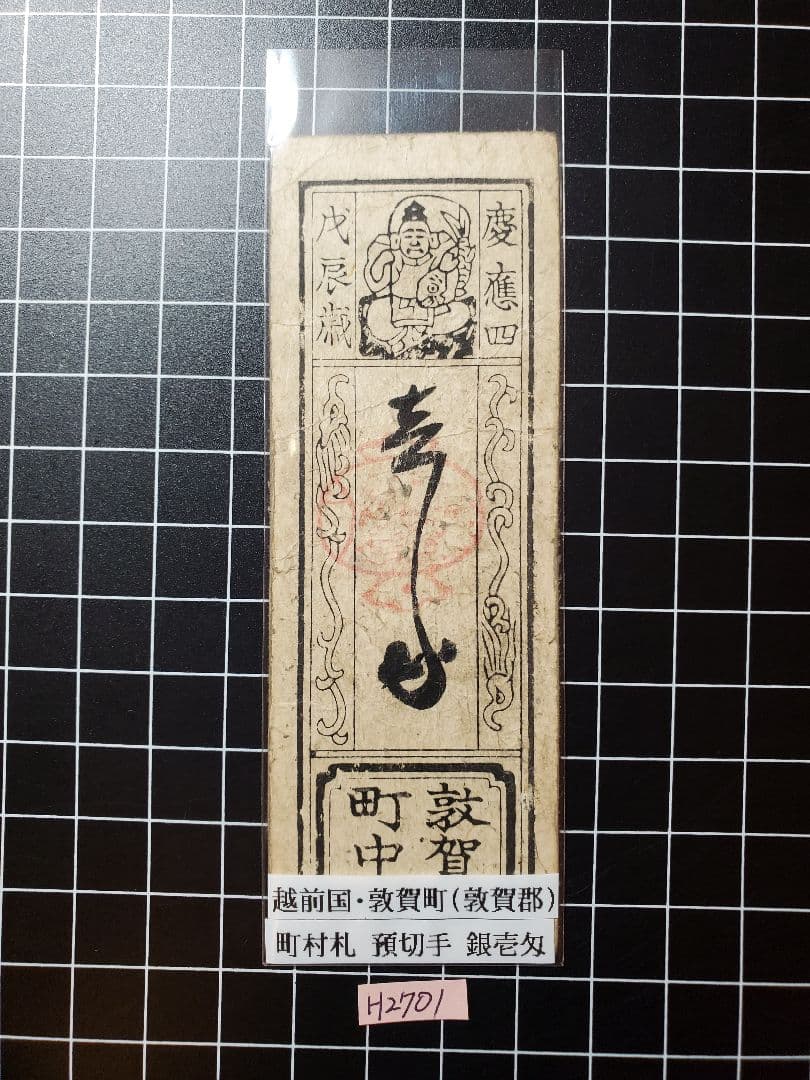 慶應四
戊辰歳
壱匁
敦賀
町中
越前国・敦賀町(敦賀郡)
町村札 預切手 銀壱匁
H2701